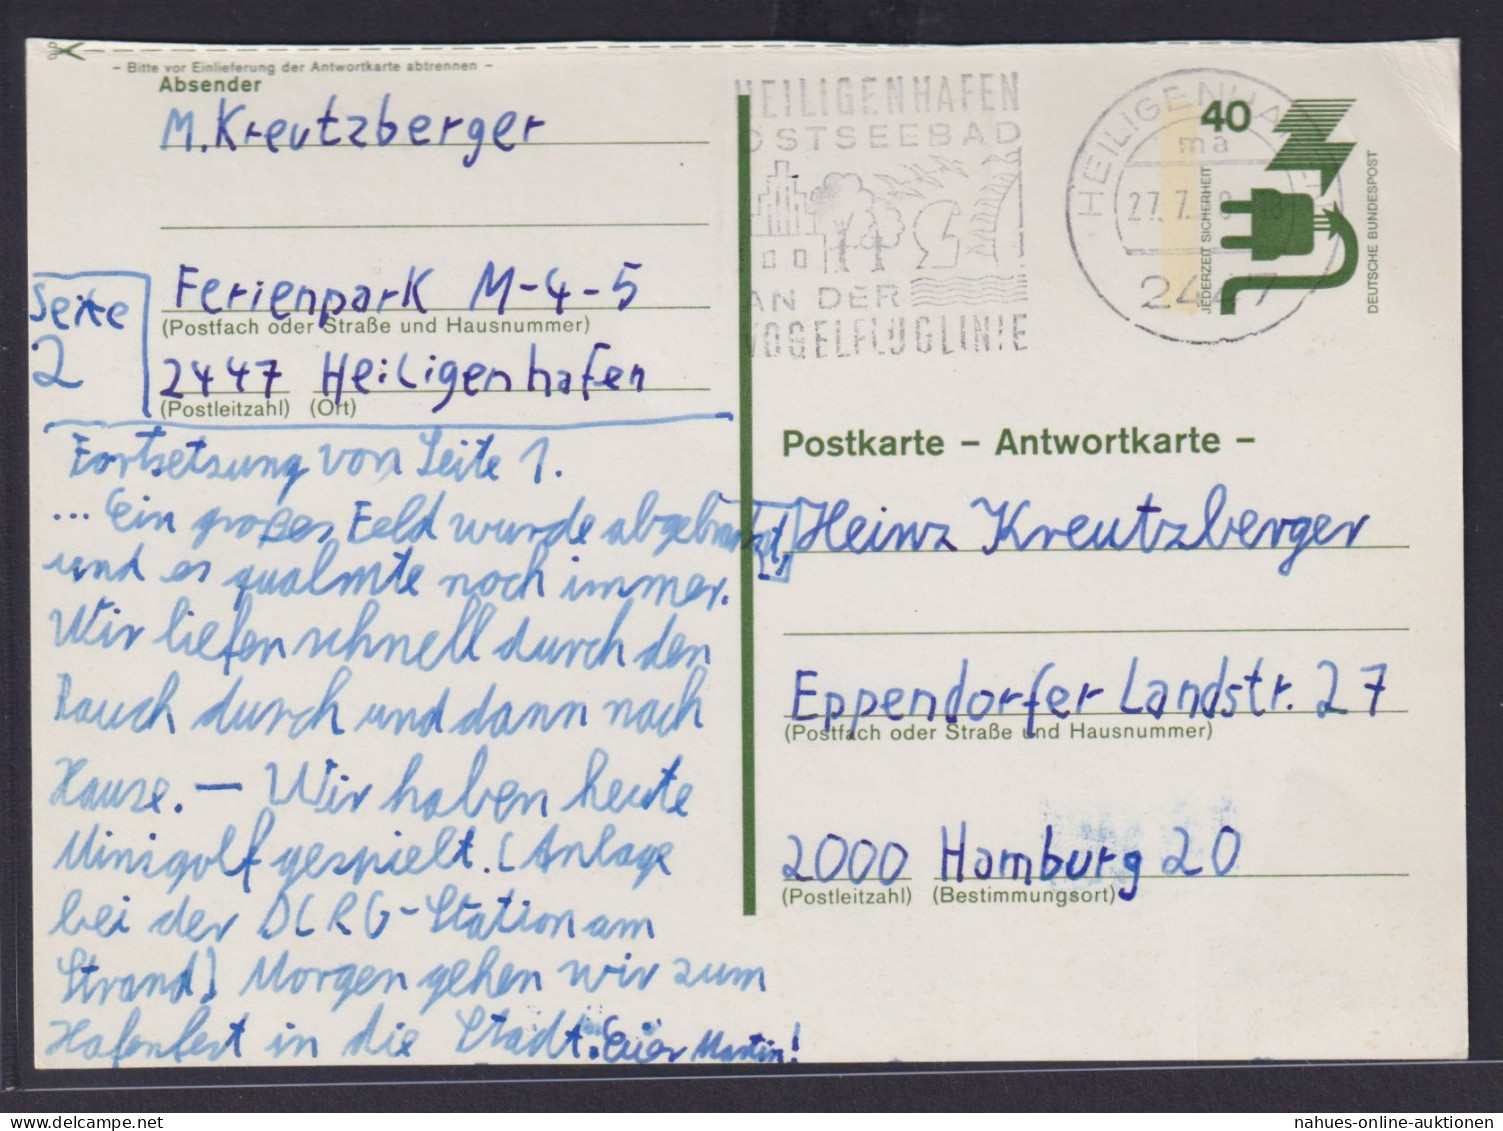 - Bitte vor Einlieferung der Antwortkarte abtrennen -
Absender
M. Kreutzberger
Ferienpark M-4-5
(Postfach oder Straße und Hausnummer)
2447 Heiligenhafen
(Postleitzahl) (Ort)
Seite
2
Fortsetzung von Seite 1.
... Ein großes Feld wurde abgebrannt,
und es qualmte noch immer.
Wir liefen schnell durch den
Rauch durch und dann nach
Hause. – Wir haben heute
Minigolf gespielt. (Anlage
bei der DLRG-Station am
Strand) Morgen gehen wir zum
Hafenfest in die Stadt. Euer Martin!
HEILIGENHAFEN
OSTSEEBAD
AN DER
VOGELFLUGLINIE
HEILIGENHAFEN
ma
27.7. 8-18
2447
40
JEDERZEIT SICHERHEIT
DEUTSCHE BUNDESPOST
Postkarte – Antwortkarte –
Heinz Kreutzberger
Eppendorfer Landstr. 27
(Postfach oder Straße und Hausnummer)
2000 Hamburg 20
(Postleitzahl) (Bestimmungsort)
nahues-online-auktionen